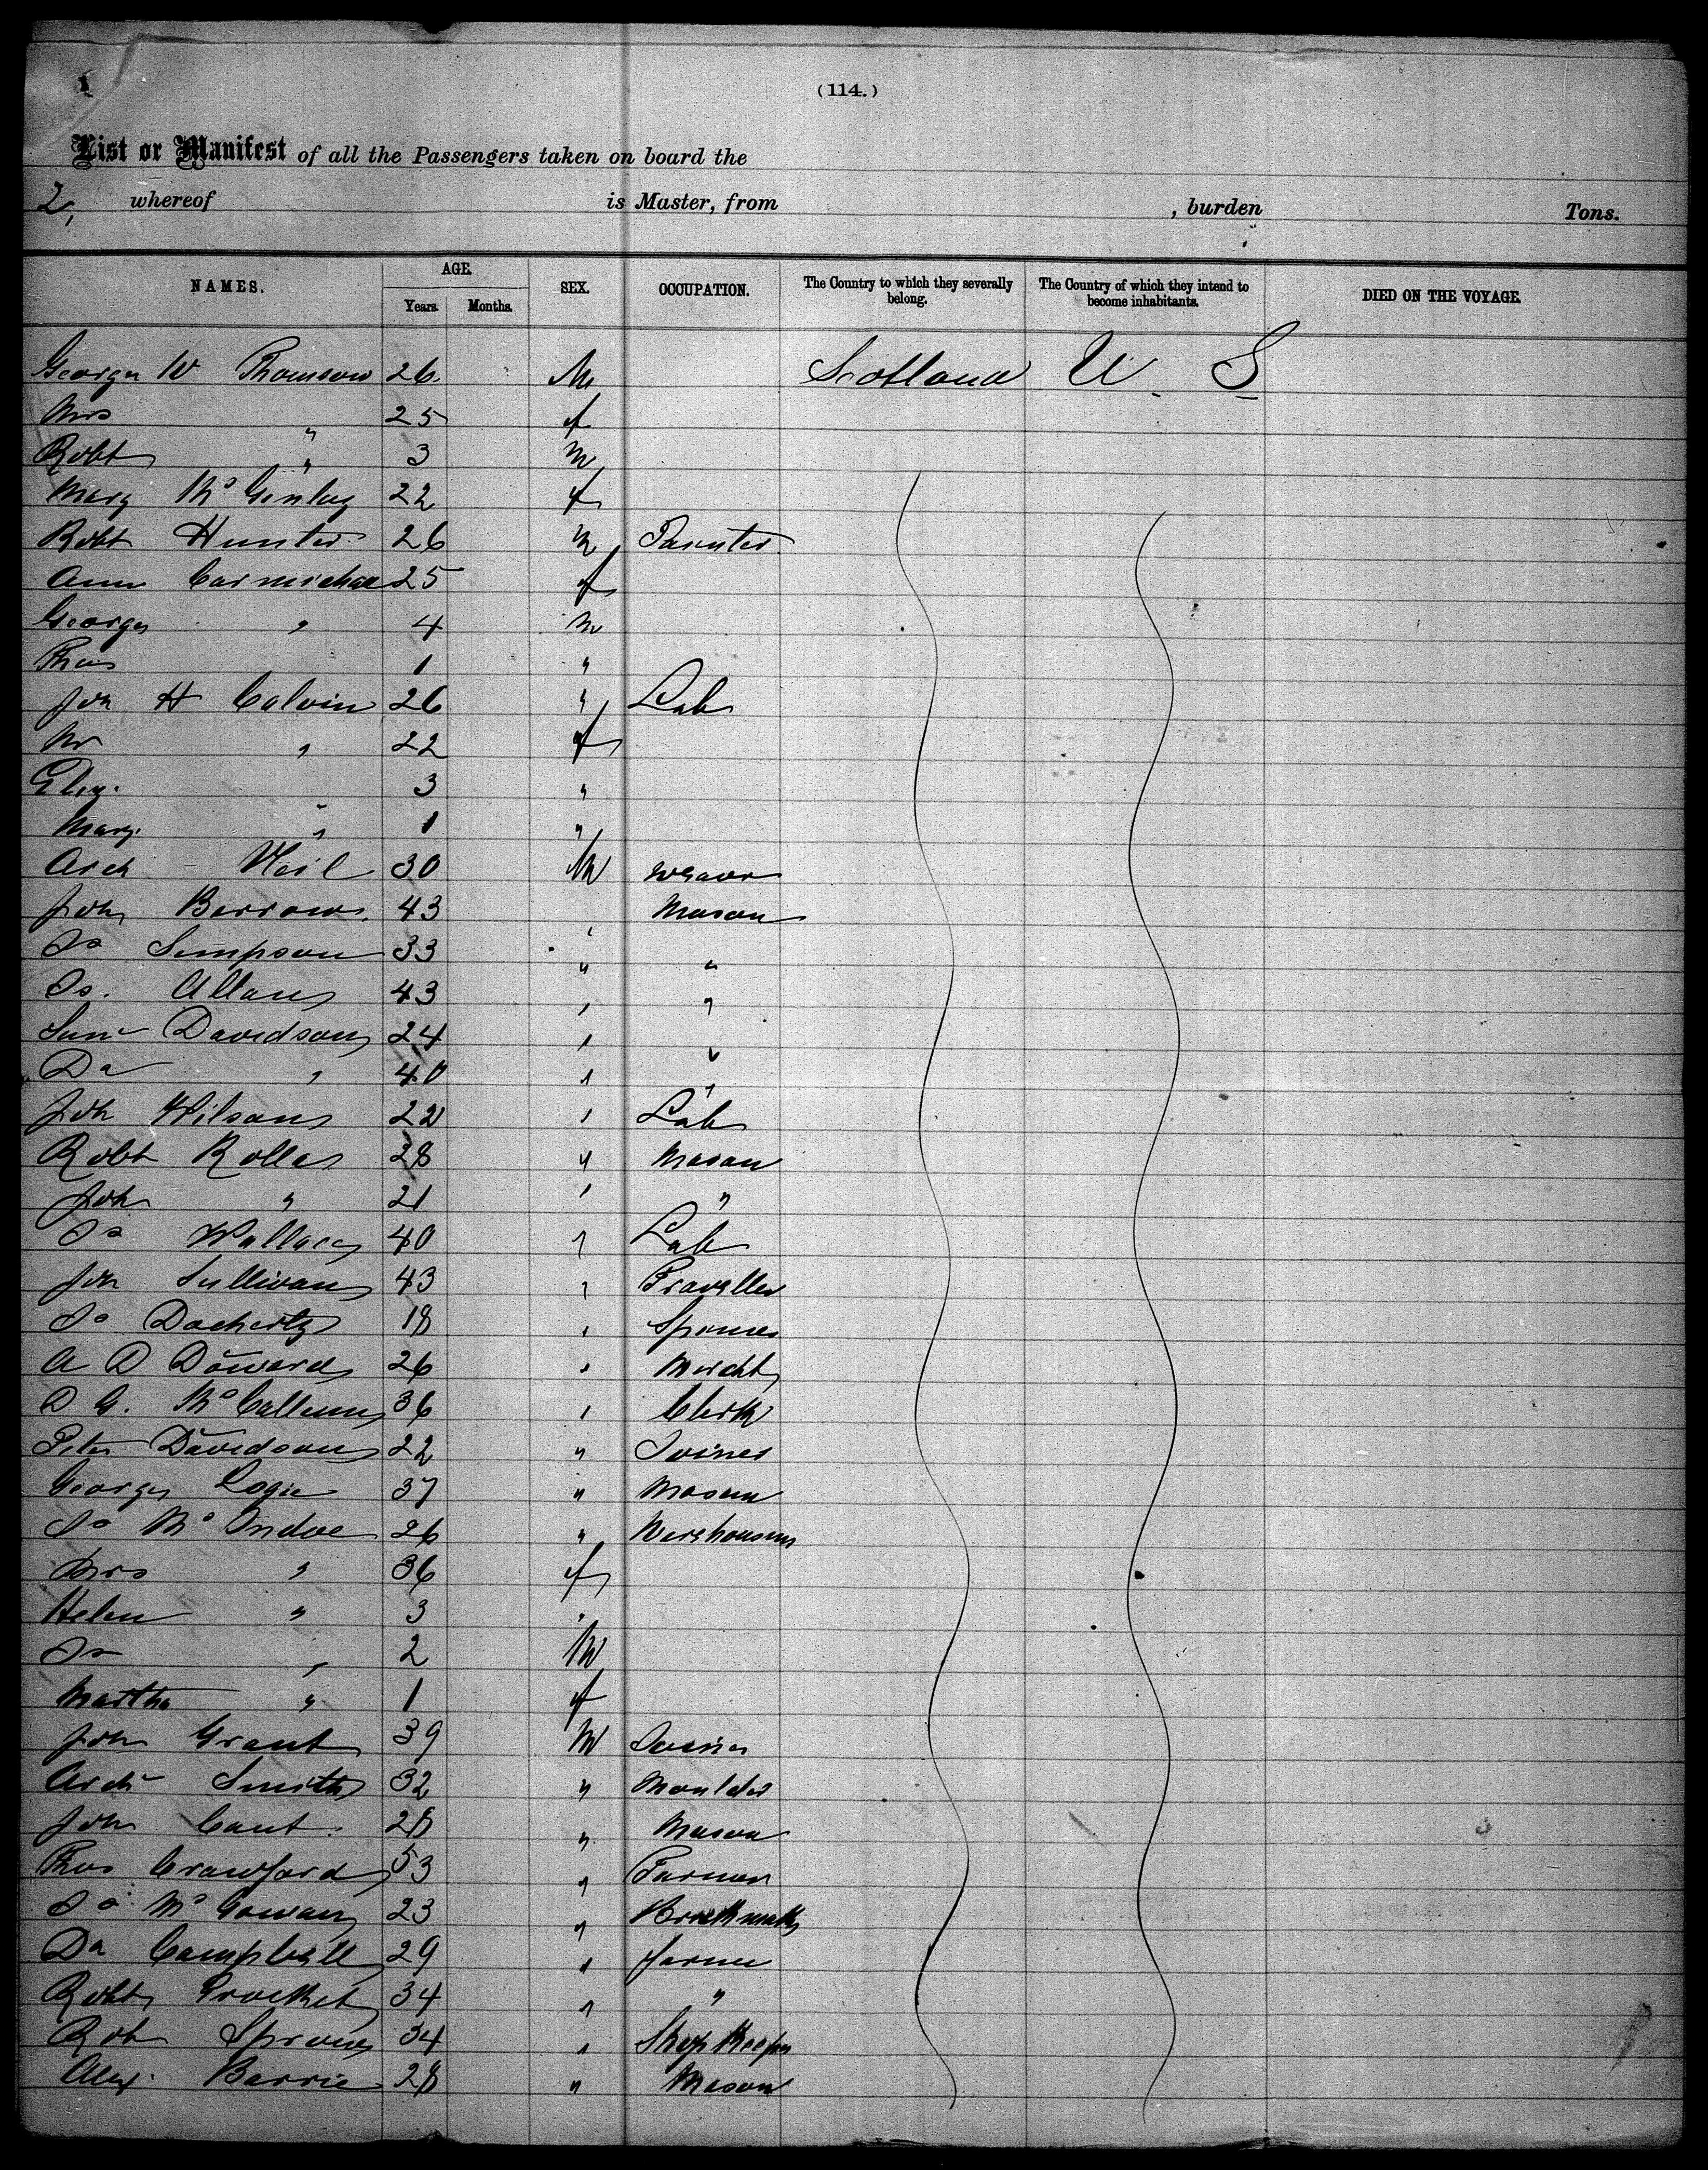 (114.)
List or Manifest of all the Passengers taken on board the
2, whereof is Master, from , burden Tons.
NAMES. AGE. SEX. OCCUPATION. The Country to which they severally belong. The Country of which they intend to become inhabitants. DIED ON THE VOYAGE.
Years. Months.
George W Thomson 26 M Scotland U. S
Mrs " 25 f
Robt " 3 m
Mary McGinlay 22 f
Robt Hunter 26 m Painter
Ann Carmichae 25 f
George " 4 m
Thos 1 "
Joh H Calvin 26 " Lab
Mr " 22 f
Eliz. 3 "
Mary " 1 "
Arch Neil 30 M weaver
John Berrow 43 " Mason
Js Simpson 33 " "
Js. Allan 43 " "
Saml Davidson 24 " "
Da " 40 " "
Joh Wilson 22 " Lab
Robt Rolla 28 " Mason
Joh " 21 " "
Js Wallace 40 " Lab
Joh Sullivan 43 " Traveller
Js Docherty 18 " Spinner
A D Doward 26 " Mercht
D G. McCallum 36 " Clerk
Peter Davidson 22 " Joiner
George Logie 37 " Mason
Js McIndoe 26 " Warehousm
Mrs " 36 f
Helen " 3 "
Js " 2 M
Martha " 1 f
John Grant 39 M Joiner
Arch Smith 32 " Moulder
John Cant 28 " Mason
Thos Crawford 53 " Farmer
Js McGowan 23 "
Da Campbell 29 " farmer
Robt Crocket 34 " "
Rob Sproul 34 " Shop Keeper
Alex. Barrie 28 " Mason